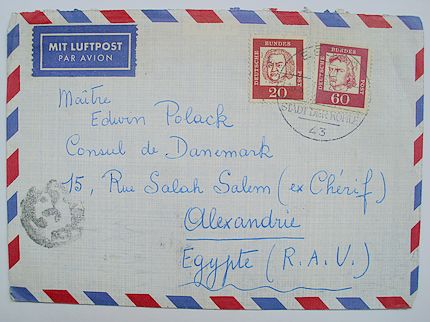 MIT LUFTPOST
PAR AVION
DEUTSCHE BUNDES POST
20
DEUTSCHE BUNDES POST
60
STADT DER KOHLE
43
Maître
Edwin Polack
Consul de Danemark
15, Rue Salah Salem (ex Chérif)
Alexandrie
Egypte (R.A.U.)